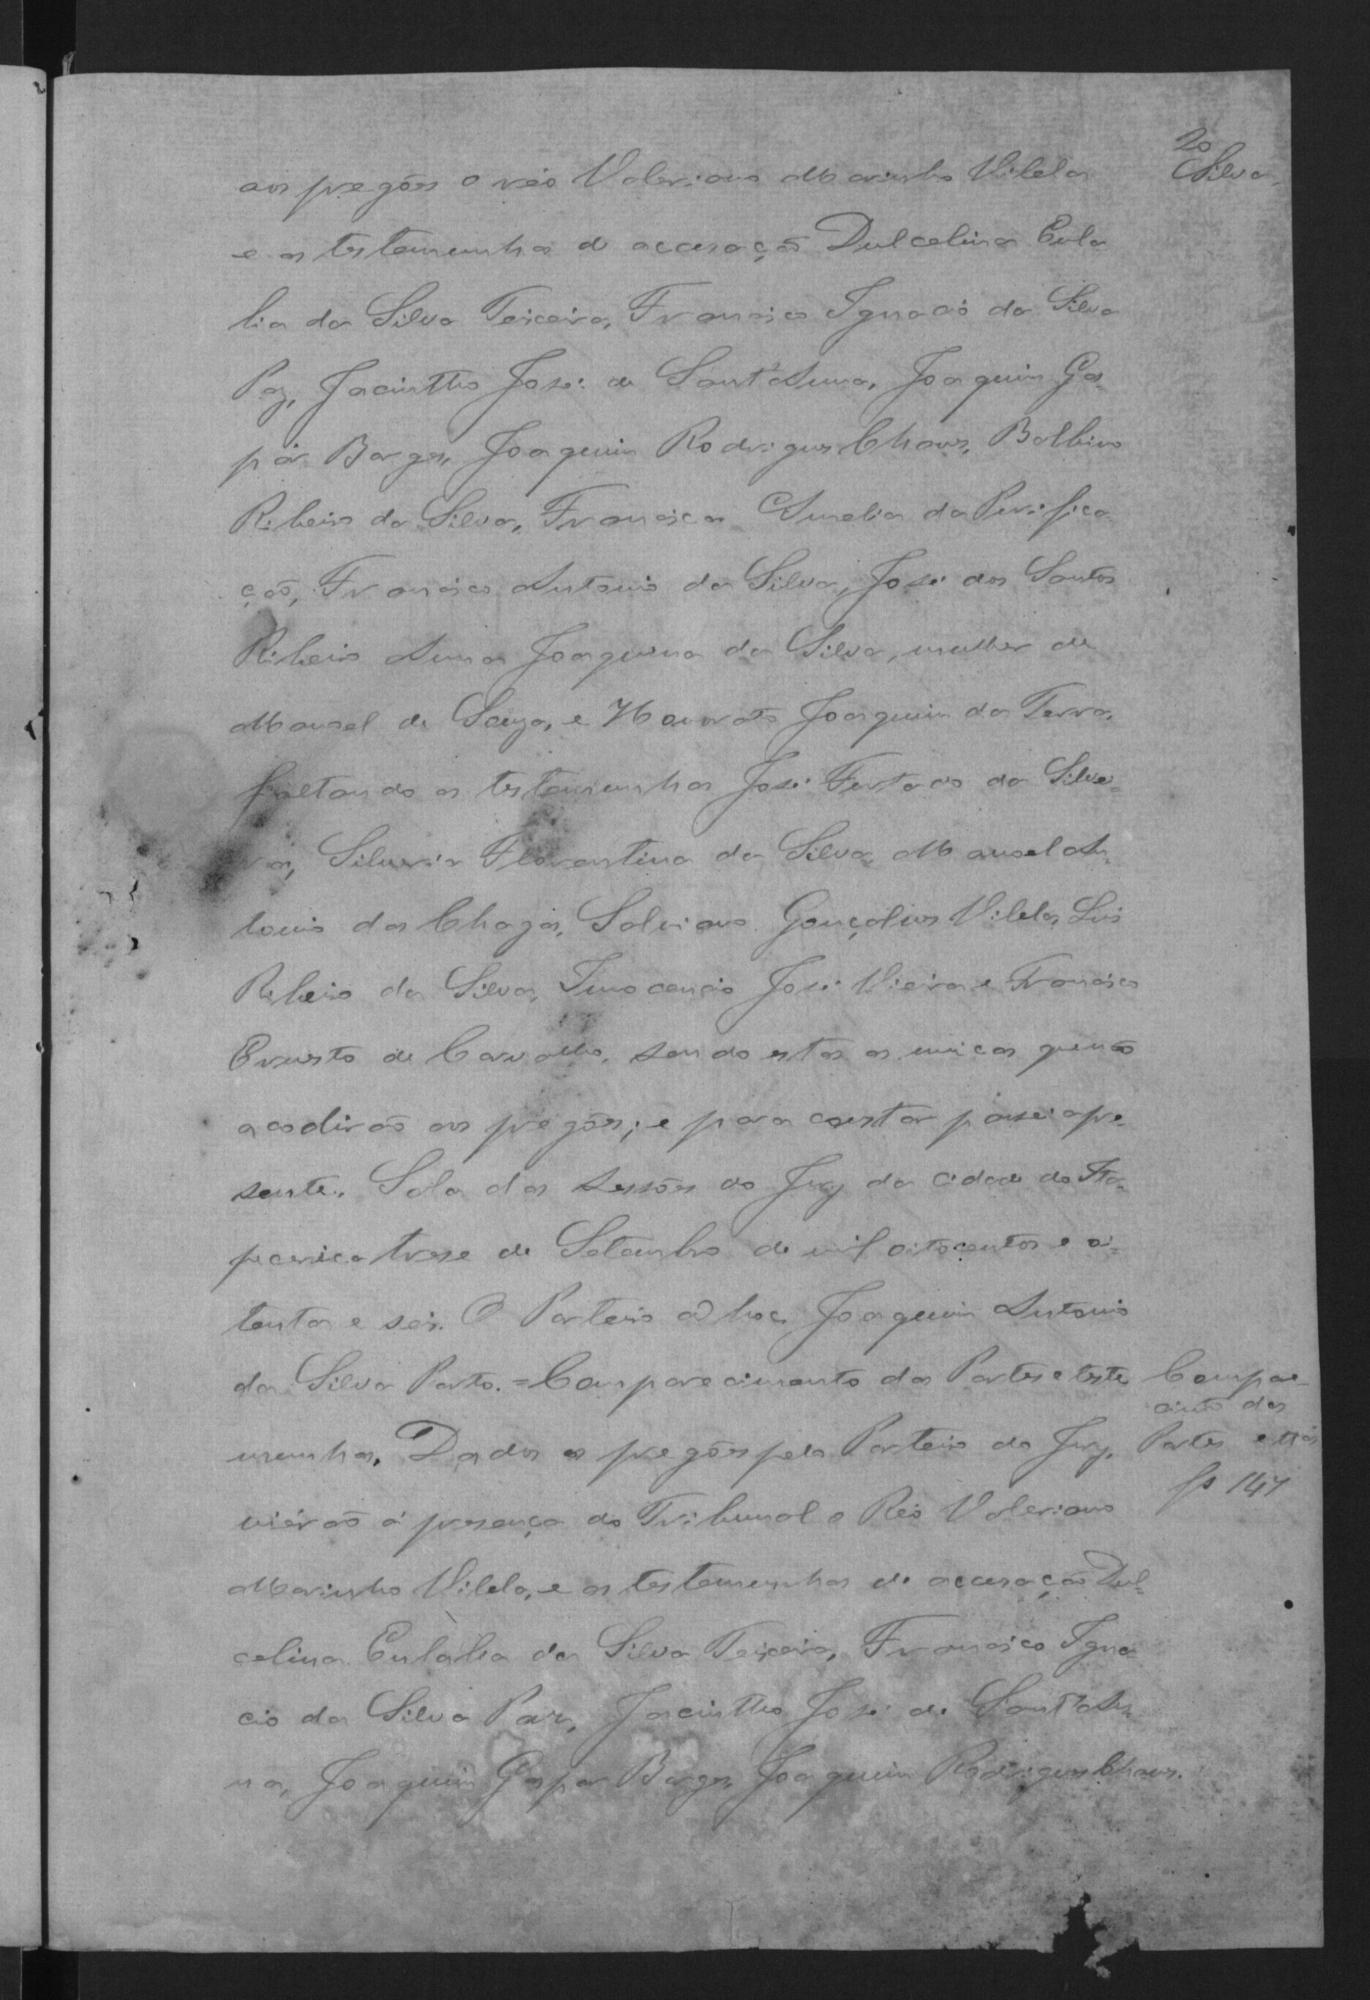 20
Silva
aos pregões o réo Valeriano Marinho Vilela
e as testemunhas de accusação Dulcelina Eula
lia da Silva Teixeira, Francisco Ignacio da Silva
Paz, Jacintho José de Sant'Anna, Joaquim Gas-
par Borges, Joaquim Rodrigues Chaves, Balbino
Ribeiro da Silva, Francisca Amelia da Purifica
ção, Francisco Antonio da Silva, José dos Santos
Ribeiro Anna Joaquina da Silva, mulher de
Manoel de Souza, e Honorato Joaquim da Terra,
faltando as testemunhas José Furtado da Silvei-
ra, Silveria Florentina da Silva, Manoel An-
tonio das Chagas, Salviano Gonçalves Vilela, Luis
Ribeiro da Silva, Innocencio José Vieira e Francisco
Ernesto de Carvalho, sendo estas as unicas que não
acodirão aos pregões; e para constar passei a pre-
sente. Sala das sessões do Jury da cidade do Ita-
pecerica trese de Setembro de mil oitocentos e oi-
tenta e seis. O Porteiro ad hoc, Joaquim Antonio
da Silva Porto. = Comparecimento das Partes e teste
munhas. Dados os pregões pelo Porteiro do Jury,
Compare-
cimto das
Partes e tas
fs 147
vierão á presença do Tribunal o Réo Valeriano
Marinho Vilela, e as testemunhas de accusação Dul-
celina Eulalia da Silva Teixeira, Francisco Igna
cio da Silva Paz, Jacintho José de Sant'An-
na, Joaquim Gaspar Borges, Joaquim Rodrigues Chaves.